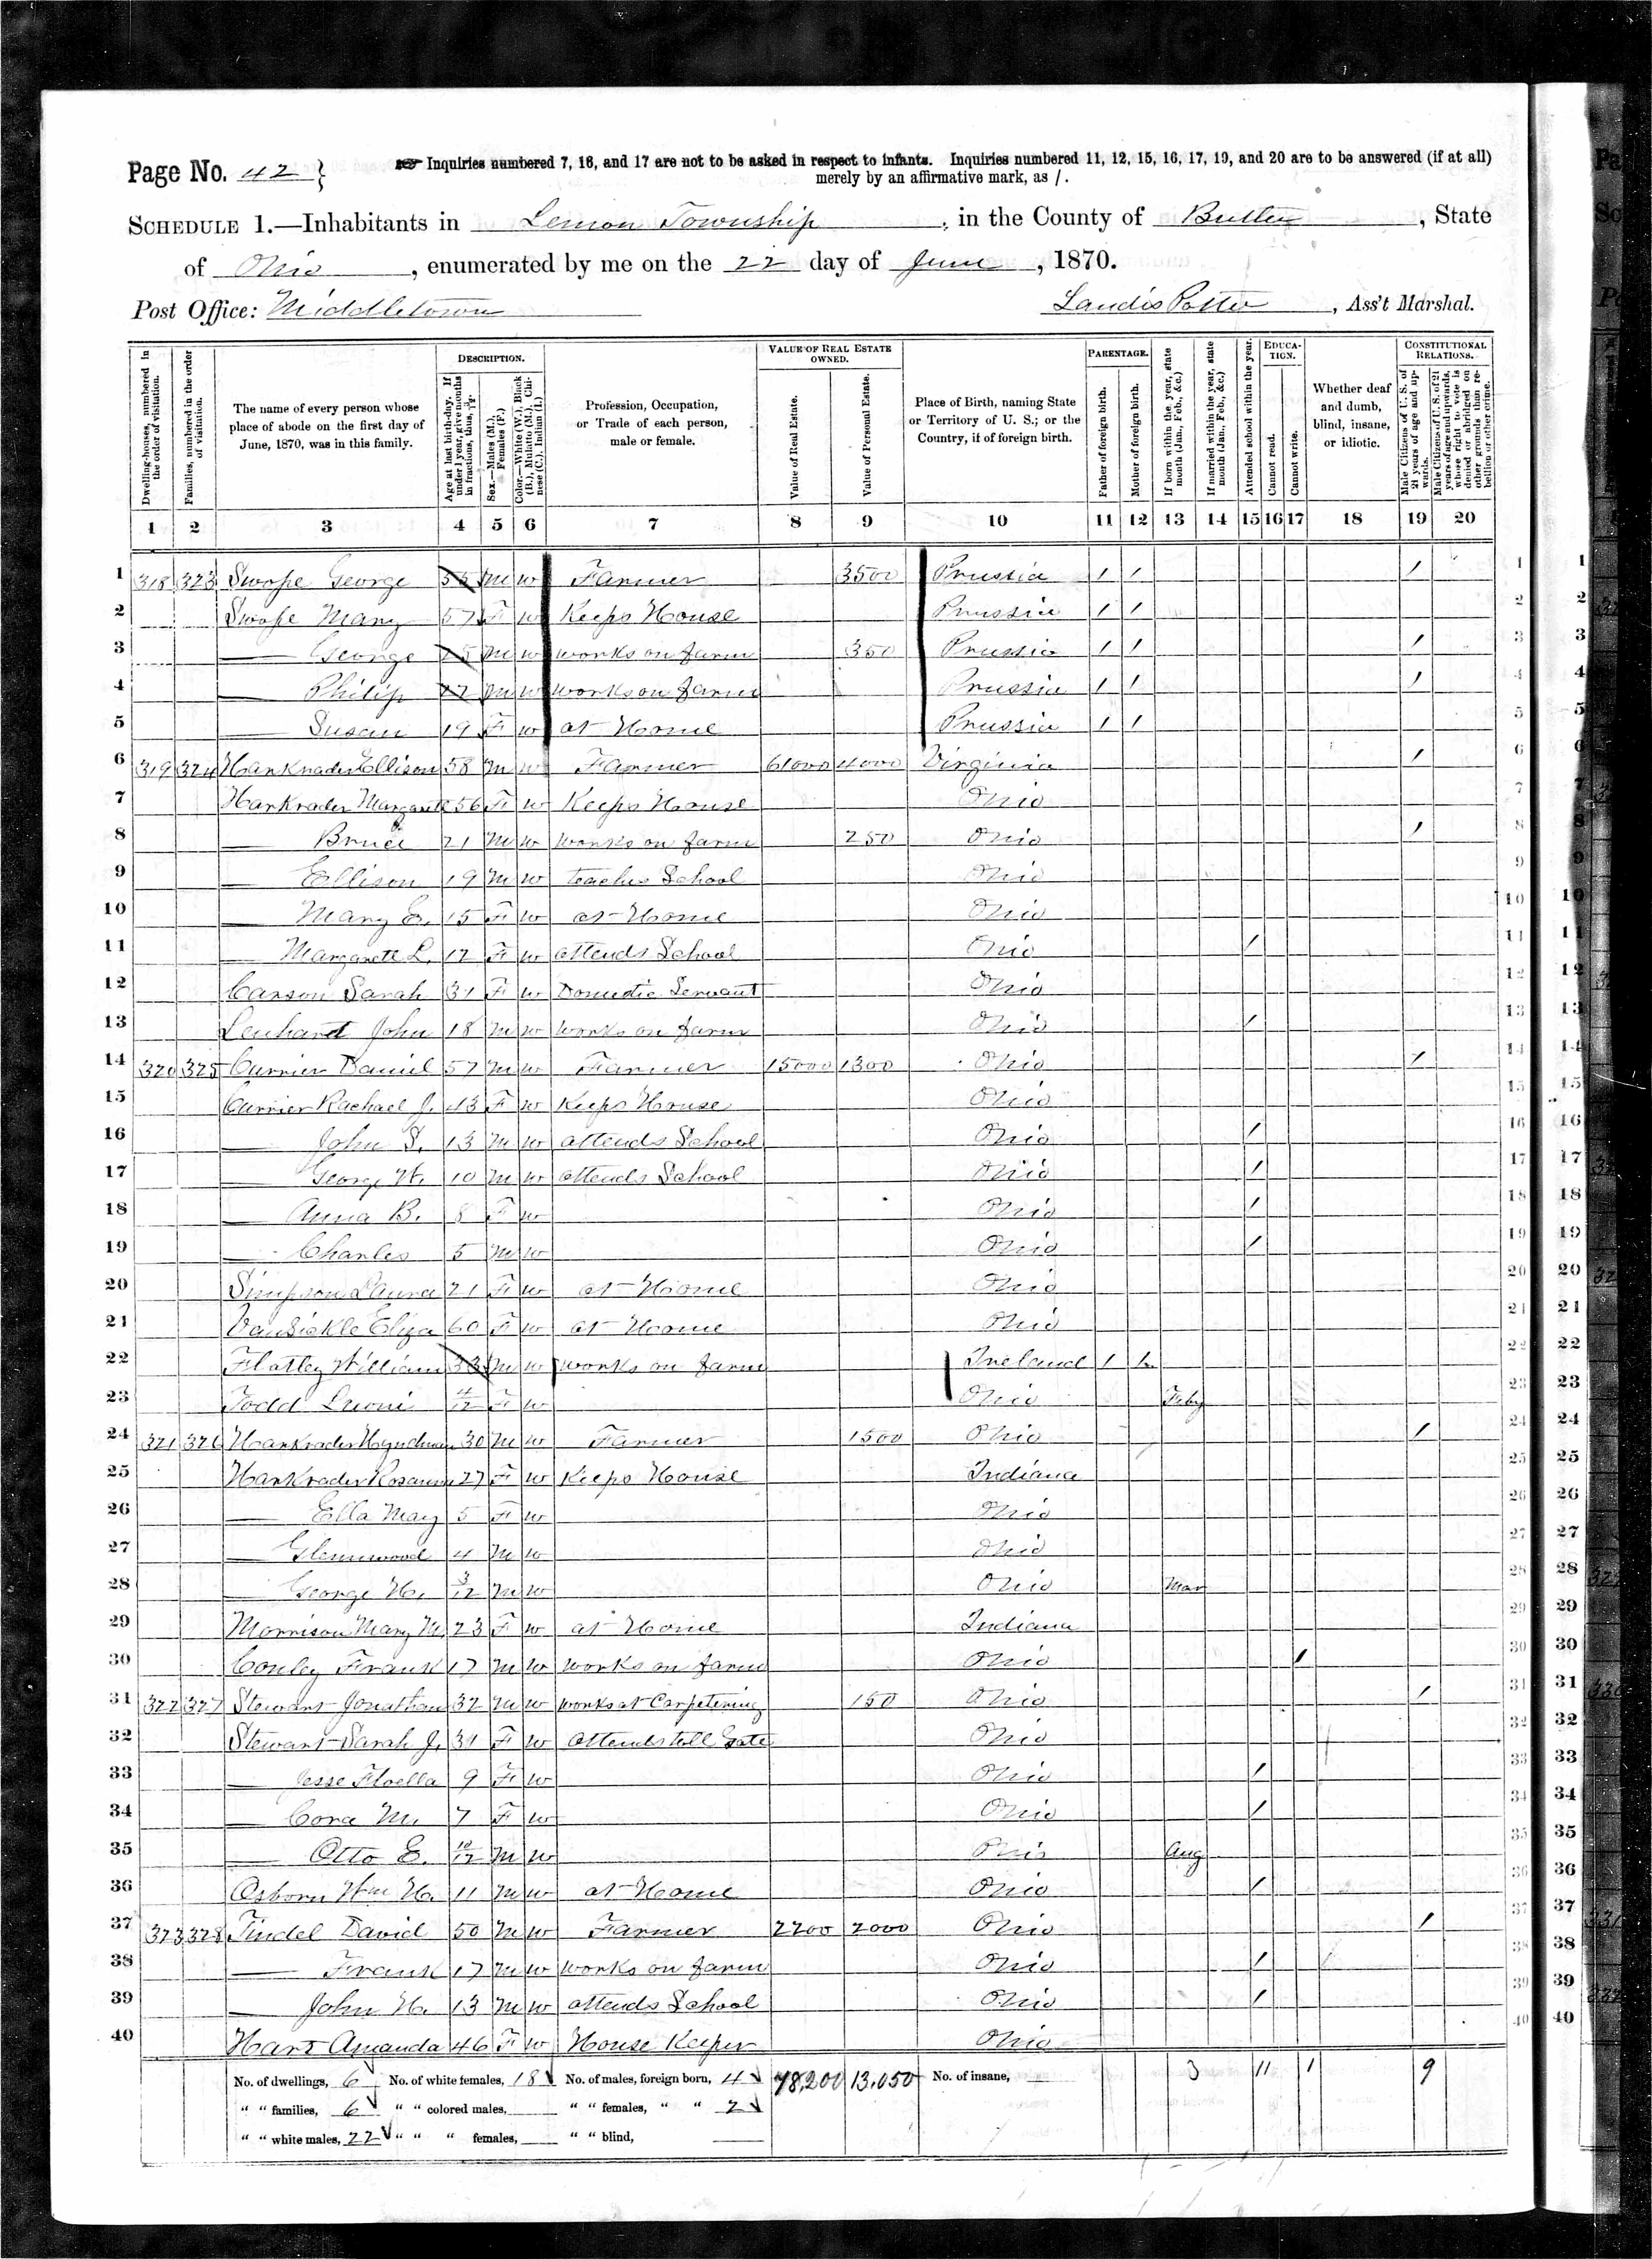 Page No. 42 } Inquiries numbered 7, 16, and 17 are not to be asked in respect to infants. Inquiries numbered 11, 12, 15, 16, 17, 19, and 20 are to be answered (if at all)
merely by an affirmative mark, as /.
SCHEDULE 1.—Inhabitants in Lemon Township, in the County of Butler, State
of Ohio, enumerated by me on the 22 day of June, 1870.
Post Office: Middletown Landis Potter, Ass't Marshal.
Dwelling-houses, numbered in the order of visitation.
Families, numbered in the order of visitation.
The name of every person whose place of abode on the first day of June, 1870, was in this family.
DESCRIPTION.
Age at last birth-day. If under 1 year, give months in fractions, thus, 3/12.
Sex.—Males (M.), Females (F.)
Color.—White (W.), Black (B.), Mulatto (M.), Chinese (C.), Indian (I.)
Profession, Occupation, or Trade of each person, male or female.
VALUE OF REAL ESTATE OWNED.
Value of Real Estate.
Value of Personal Estate.
Place of Birth, naming State or Territory of U. S.; or the Country, if of foreign birth.
PARENTAGE.
Father of foreign birth.
Mother of foreign birth.
If born within the year, state month (Jan., Feb., &c.)
If married within the year, state month (Jan., Feb., &c.)
Attended school within the year.
EDUCATION.
Cannot read.
Cannot write.
Whether deaf and dumb, blind, insane, or idiotic.
CONSTITUTIONAL RELATIONS.
Male Citizens of U. S. of 21 years of age and upwards.
Male Citizens of U. S. of 21 years of age and upwards, whose right to vote is denied or abridged on other grounds than rebellion or other crime.
1 2 3 4 5 6 7 8 9 10 11 12 13 14 15 16 17 18 19 20
1 318 323 Swope George 55 M W Farmer 3500 Prussia / / / 1
2 Swope Mary 57 F W Keeps House Prussia / / 2
3 — George 25 M W works on farm 350 Prussia / / / 3
4 — Philip 22 M W works on farm Prussia / / / 4
5 — Susan 19 F W at Home Prussia / / 5
6 319 324 Hankrader Ellison 58 M W Farmer 61000 4000 Virginia / 6
7 Hankrader Margarett 56 F W Keeps House Ohio 7
8 — Bruce 21 M W works on farm 250 Ohio / 8
9 — Ellison 19 M W teaches School Ohio 9
10 — Mary E. 15 F W at Home Ohio 10
11 — Margarett L. 12 F W attends School Ohio / 11
12 Carson Sarah 31 F W Domestic Servant Ohio 12
13 Lenhard John 18 M W works on farm Ohio / 13
14 320 325 Currier Daniel 57 M W Farmer 15000 1300 Ohio / 14
15 Currier Rachael J. 43 F W Keeps House Ohio 15
16 — John S. 13 M W attends School Ohio / 16
17 — George W. 10 M W attends School Ohio / 17
18 — Anna B. 8 F W Ohio / 18
19 — Charles 5 M W Ohio / 19
20 Simpson Laura 21 F W at Home Ohio 20
21 VanSickle Eliza 60 F W at Home Ohio 21
22 Flatley William 33 M W works on farm Ireland / / 22
23 Todd 4/12 F W Ohio Feby 23
24 321 326 Hankrader Hyndman 30 M W Farmer 1500 Ohio / 24
25 Hankrader Rosanna 27 F W Keeps House Indiana 25
26 — Ella May 5 F W Ohio 26
27 — Glennwood 4 M W Ohio 27
28 — George H. 3/12 M W Ohio Mar 28
29 Morrison Mary M. 23 F W at Home Indiana 29
30 Conley Frank 17 M W works on farm Ohio / 30
31 322 327 Stewart Jonathan 32 M W works at Carpetering 150 Ohio / 31
32 Stewart Sarah J. 31 F W attends toll Gate Ohio 32
33 — Jesse Floella 9 F W Ohio / 33
34 — Cora M. 7 F W Ohio / 34
35 — Otto E. 10/12 M W Ohio Aug 35
36 Osborn Wm H. 11 M W at Home Ohio / 36
37 323 328 Tindel David 50 M W Farmer 2200 2000 Ohio / 37
38 — Frank 17 M W works on farm Ohio / 38
39 — John H. 13 M W attends School Ohio / 39
40 Hart Amanda 46 F W House Keeper Ohio 40
No. of dwellings, 6 No. of white females, 18 No. of males, foreign born, 4 78,200 13,050 No. of insane, 3 11 1 9
" " families, 6 " " colored males, " " females, " " 2
" " white males, 22 " " " females, " " blind,